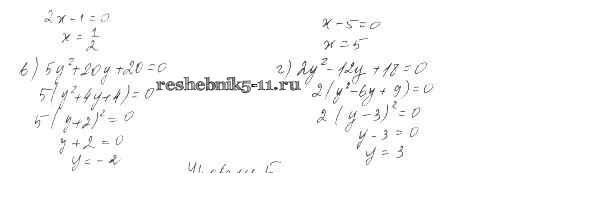 2x-1=0
x=1/2
в) 5y²+20y+20=0
5(y²+4y+4)=0
5(y+2)²=0
y+2=0
y=-2
x-5=0
x=5
г) 2y²-12y+18=0
2(y²-6y+9)=0
2(y-3)²=0
y-3=0
y=3
reshebnik5-11.ru